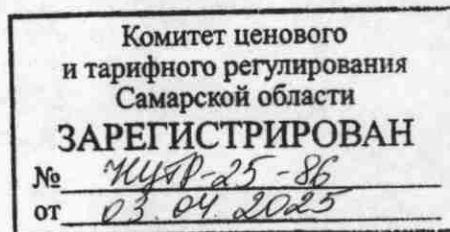 Комитет ценового
и тарифного регулирования
Самарской области
ЗАРЕГИСТРИРОВАН
№ КЦТР-25-86
от 03.04.2025